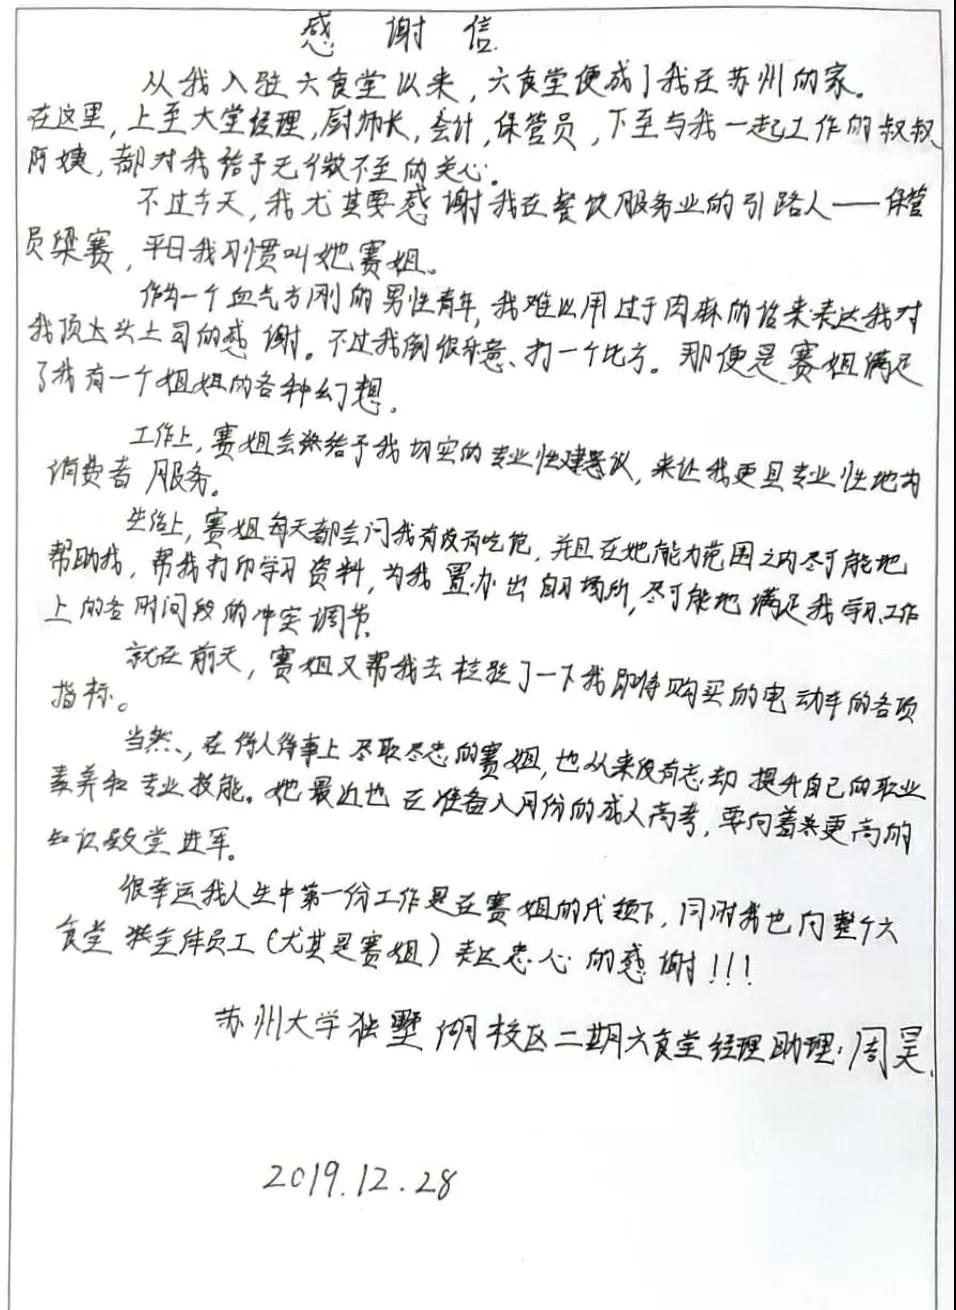 感谢信
从我入驻六食堂以来，六食堂便成了我在苏州的家。
在这里，上至大堂经理，厨师长，会计，保管员，下至与我一起工作的叔叔、
阿姨，都对我给予无微不至的关心。
不过今天，我尤其要感谢我在餐饮服务业的引路人——保管
员梁赛，平日我习惯叫她赛姐。
作为一个血气方刚的男性青年，我难以用过于肉麻的话来表达我对
我顶头上司的感谢。不过我倒很乐意、打一个比方。那便是赛姐满足
了我有一个姐姐的各种幻想。
工作上，赛姐会给予我切实的专业性建议，来让我更具专业性地为
消费者服务。
生活上，赛姐每天都会问我有没有吃饱，并且在她能力范围之内尽可能地
帮助我，帮我打印学习资料，为我置办出自习场所，尽可能地满足我学习、工作
上的各时间段的冲突调节。
就在前天，赛姐又帮我去检验了一下我即将购买的电动车的各项
指标。
当然、，在待人待事上尽职尽忠的赛姐，也从来没有忘却提升自己的职业
素养和专业技能。她最近也在准备八月份的成人高考，要向着更高的
知识殿堂进军。
很幸运我人生中第一份工作是在赛姐的代领下，同时我也向整个六
食堂全体员工（尤其是赛姐）表达忠心的感谢！！！
苏州大学独墅湖校区二期六食堂经理助理：周昊
2019.12.28